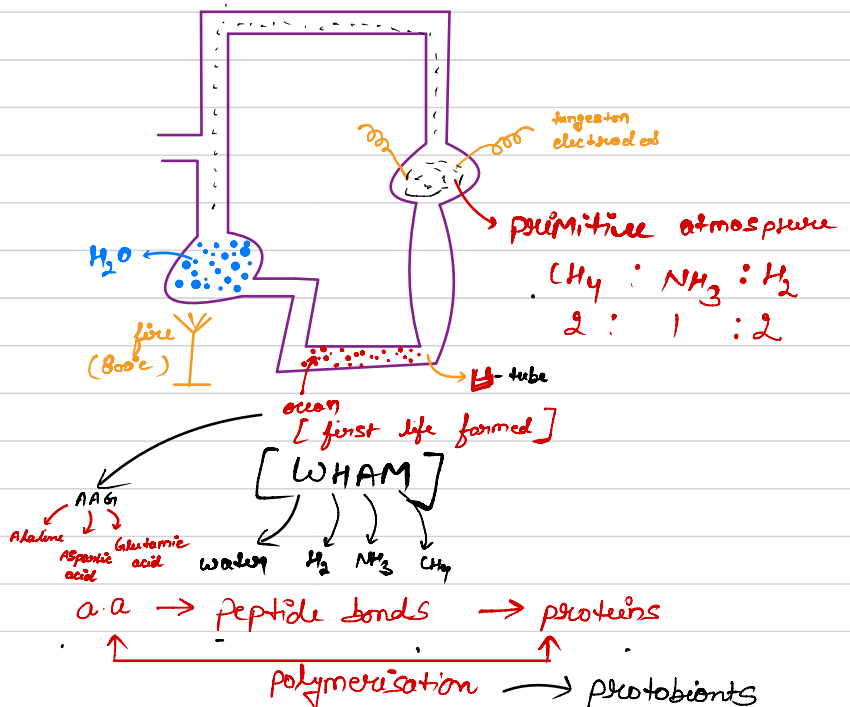 tungeston
electrodes
primitive atmospure
H2O
CH4 : NH3 : H2
2 : 1 : 2
fire
(800°c)
U-tube
ocean
[first life formed]
[WHAM]
AAG
Alaline
Aspartic
acid
Glutamic
acid
water H2 NH3 CH4
a.a → peptide bonds → proteins
polymerisation → protobionts